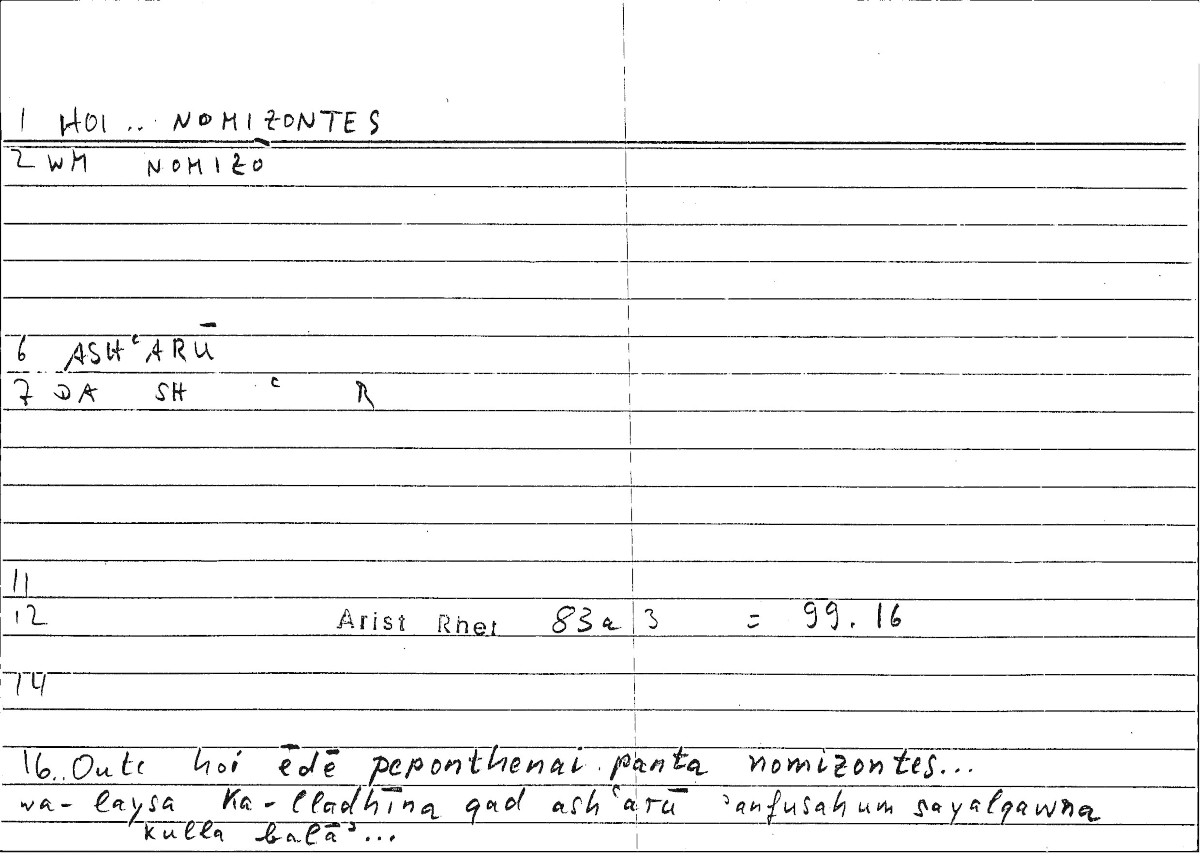 1 HOI .. NOMIZONTES
2 WM NOMIZŌ
6 ASHʿARŪ
7 DA SH ʿ R
11
12 Arist Rhet 83a 3 = 99.16
14
16. Oute hoi ēdē peponthenai panta nomizontes...
wa-laysa ka-lladhīna qad ashʿarū ʾanfusahum sayalqawna
kulla balāʾ...